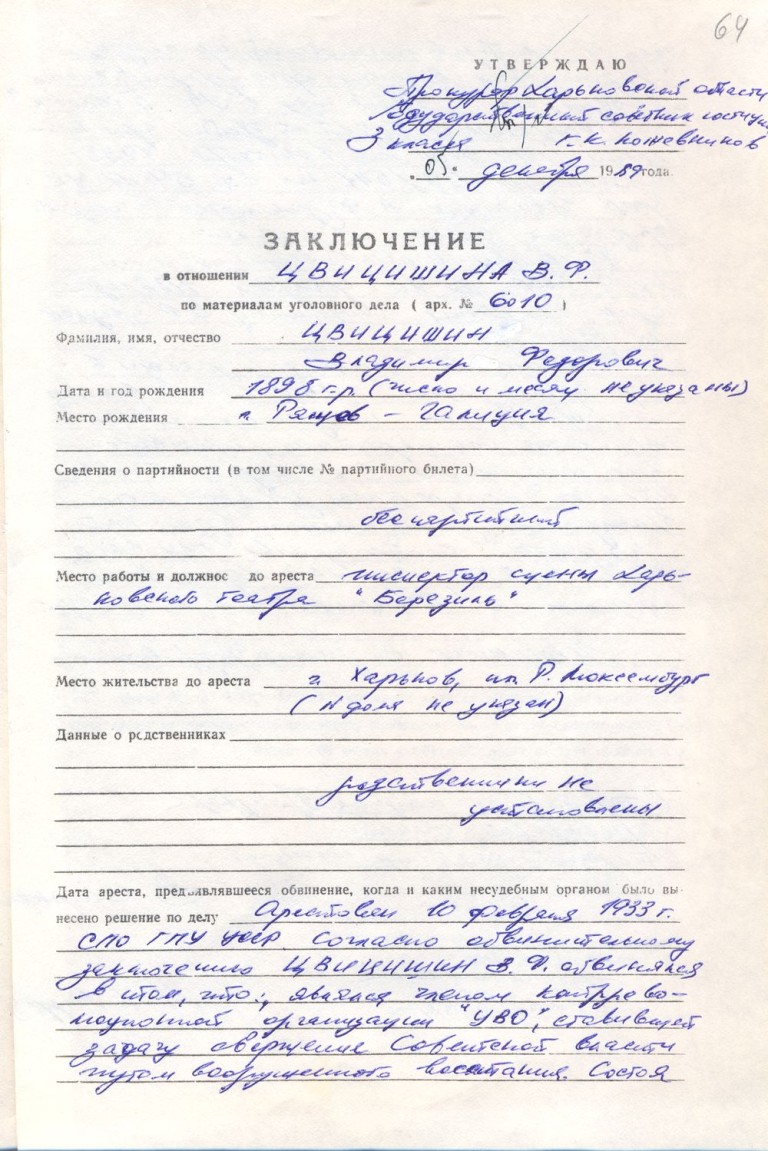 64
УТВЕРЖДАЮ
Прокурор Харьковской области
Государственный советник юстиции
3 класса Г.К. Кожевников
"05" декабря 1989 года.
ЗАКЛЮЧЕНИЕ
в отношении ЦВИЦИШИНА В. Ф.
по материалам уголовного дела ( арх. № 6010 )
Фамилия, имя, отчество ЦВИЦИШИН
Владимир Федорович
Дата и год рождения 1898 г.р. (число и месяц не указаны)
Место рождения Ряшов – Галиция
Сведения о партийности (в том числе № партийного билета)
беспартийный
Место работы и должнос до ареста инспектор сцены Харь-
ковского театра "Березиль"
Место жительства до ареста г. Харьков, пл. Р. Люксембург
(N дома не указан)
Данные о родственниках
родственники не
установлены
Дата ареста, предъявлявшееся обвинение, когда и каким несудебным органом было вы-
несено решение по делу Арестован 10 февраля 1933 г.
СПО ГПУ УССР. Согласно обвинительному
заключению ЦВИЦИШИН В. Ф. обвинялся
в том, что: являлся членом контррево-
люционной организации "УВО", ставившей
задачу свержения Советской власти
путем вооруженного восстания. Состоя